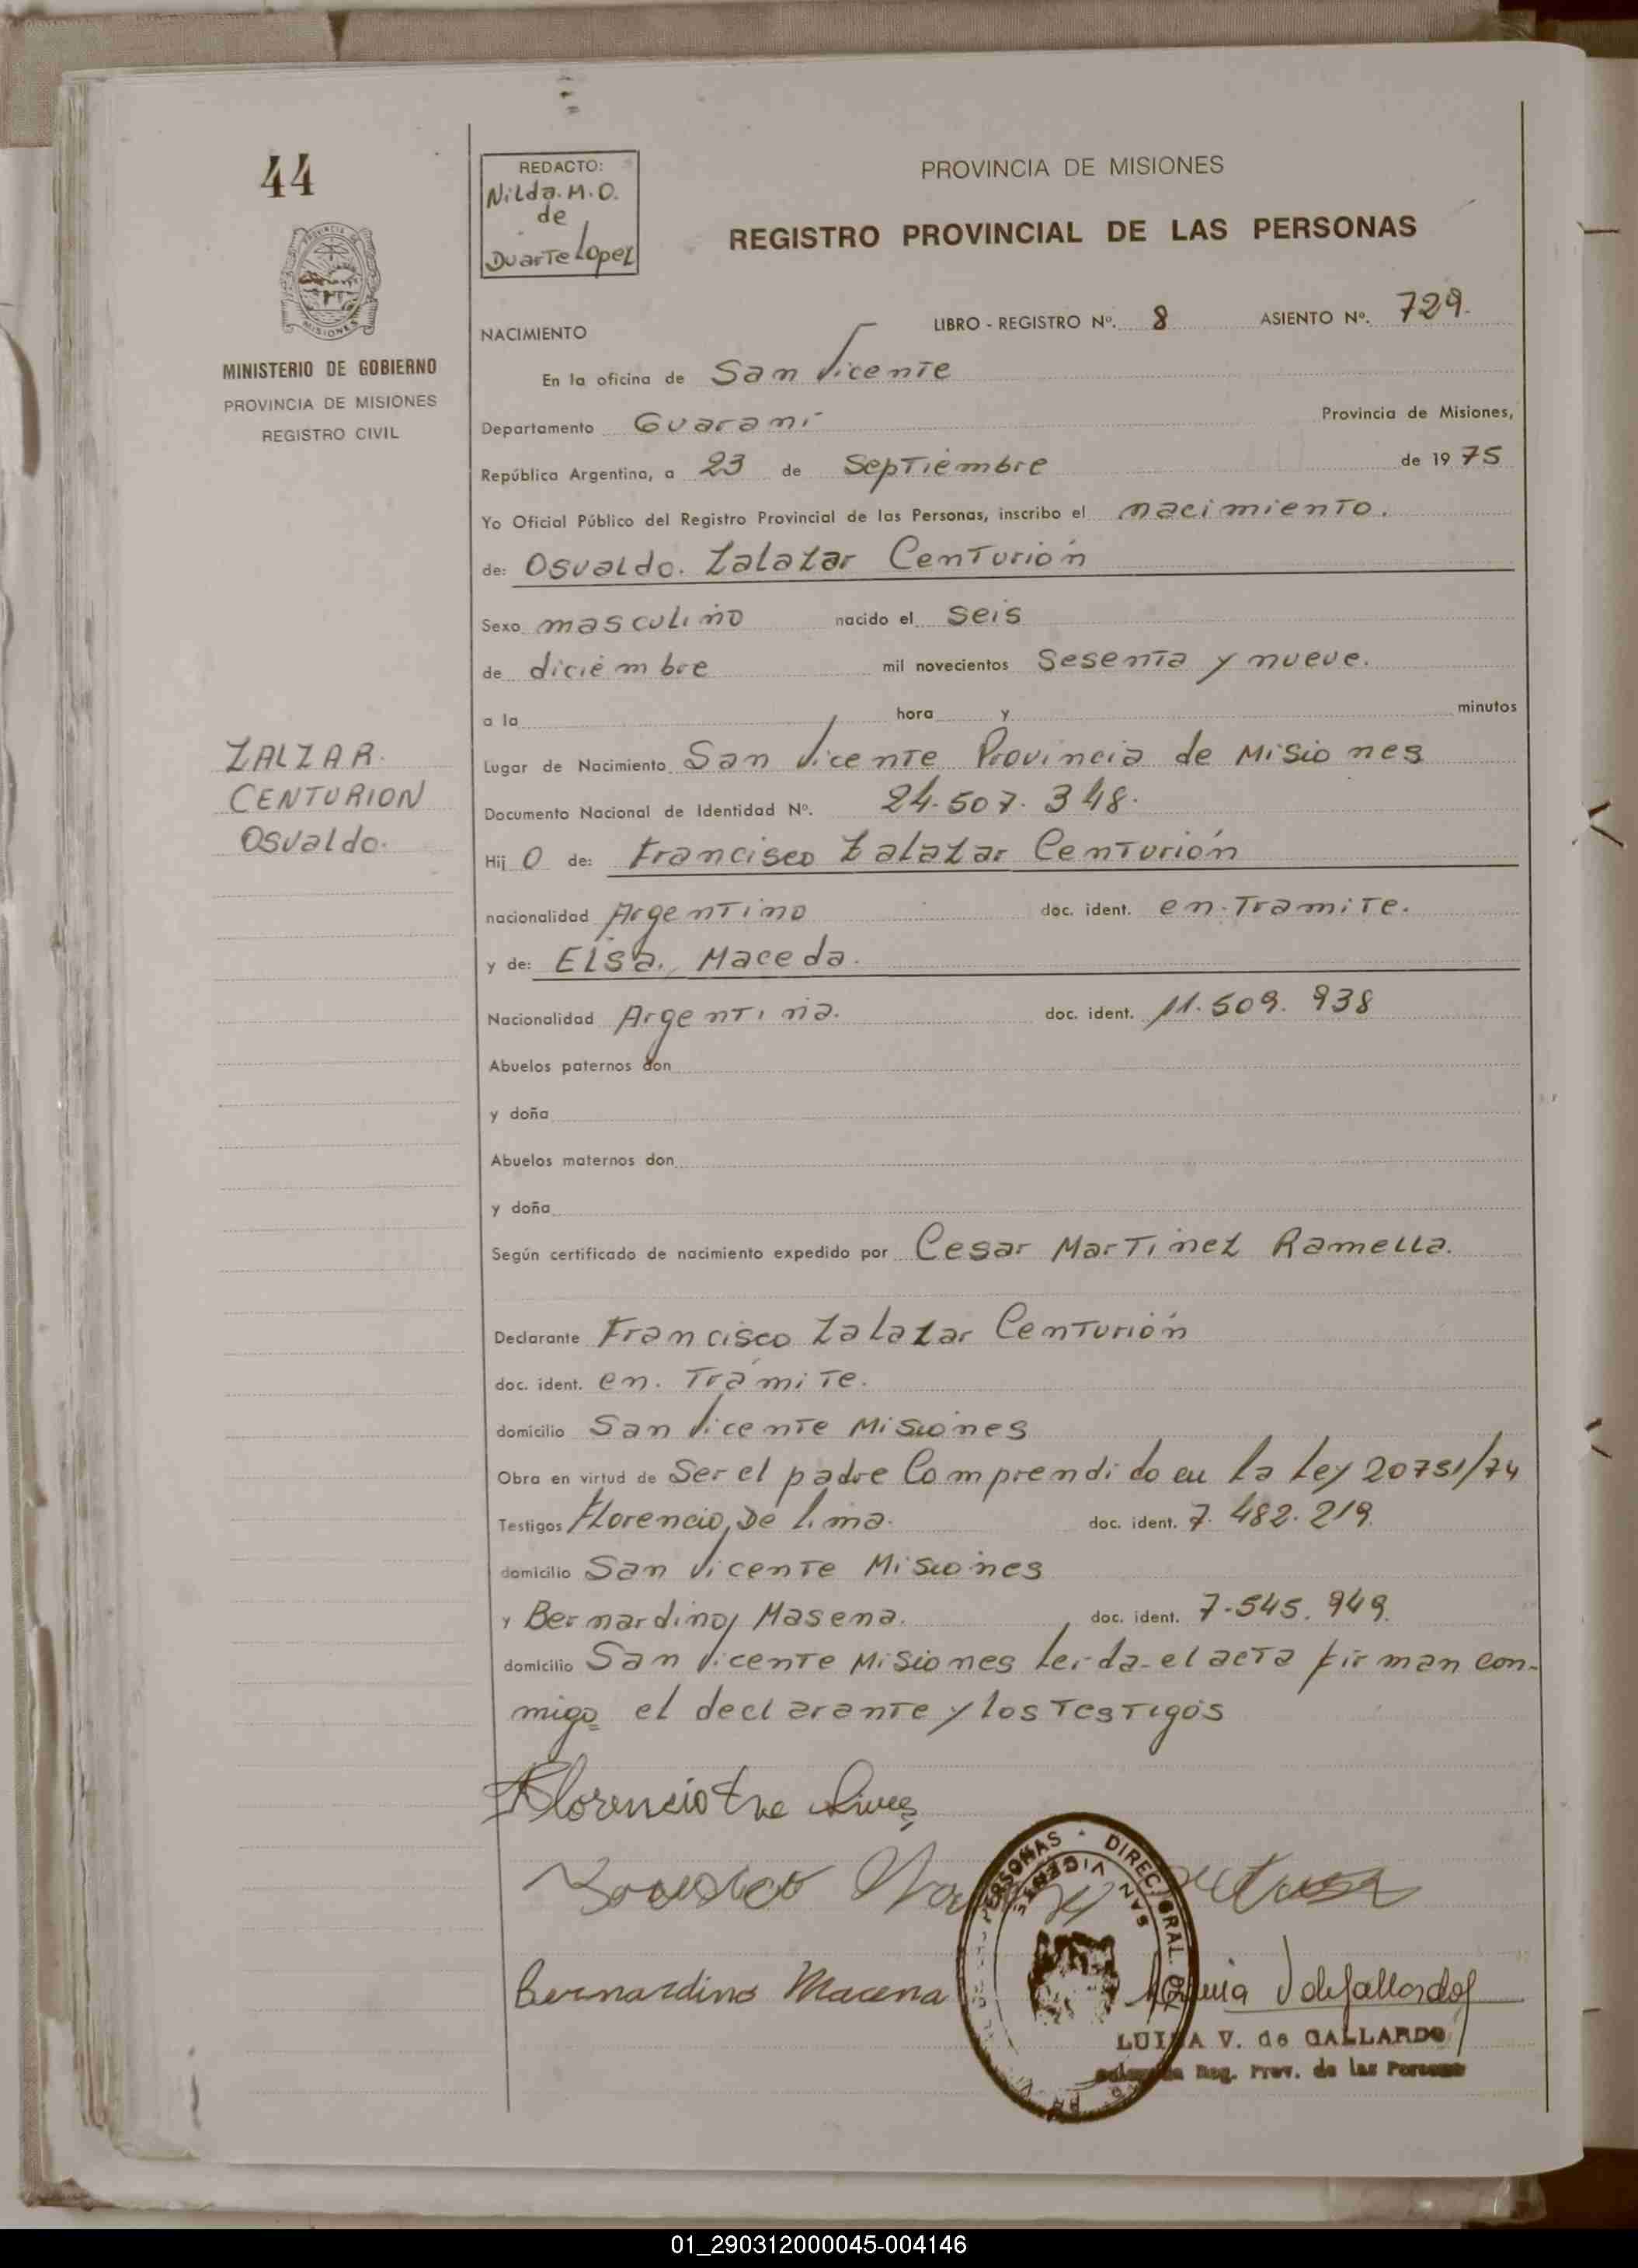 44
REDACTO:
Nilda. M. O.
de
Duarte Lopez
PROVINCIA DE MISIONES
REGISTRO PROVINCIAL DE LAS PERSONAS
PROVINCIA DE
MISIONES
MINISTERIO DE GOBIERNO
PROVINCIA DE MISIONES
REGISTRO CIVIL
NACIMIENTO
LIBRO - REGISTRO Nº. 8 ASIENTO Nº. 729.
En la oficina de San Vicente
Departamento Guaraní Provincia de Misiones,
República Argentina, a 23 de Septiembre de 1975
Yo Oficial Público del Registro Provincial de las Personas, inscribo el nacimiento.
de: Osvaldo. Zalazar Centurión
Sexo masculino nacido el Seis
de diciembre mil novecientos Sesenta y nueve.
a la hora y minutos
Lugar de Nacimiento San Vicente Provincia de Misiones
Documento Nacional de Identidad Nº. 24.507.348.
ZALZAR.
CENTURION
Osvaldo.
Hij o de: Francisco Zalazar Centurión
nacionalidad Argentino doc. ident. en Tramite.
y de: Elsa. Maceda.
Nacionalidad Argentina. doc. ident. 11.509.938
Abuelos paternos don
y doña
Abuelos maternos don
y doña
Según certificado de nacimiento expedido por Cesar Martinez Ramella.
Declarante Francisco Zalazar Centurión
doc. ident. en. Trámite.
domicilio San Vicente Misiones
Obra en virtud de Ser el padre Comprendido en la Ley 20751/74
Testigos Florencio, De Lima. doc. ident. 7.482.219.
domicilio San Vicente Misiones
y Bernardino, Masena. doc. ident. 7.545.949.
domicilio San Vicente Misiones Leida el acta firman con-
migo el declarante y los Testigos
Florencio
Bernardino Macena
PERSONAS - DIREC. GRAL. DEL
SAN VICENTE
LUISA V. de GALLARDO
Reg. Prov. de las Personas
01_290312000045-004146